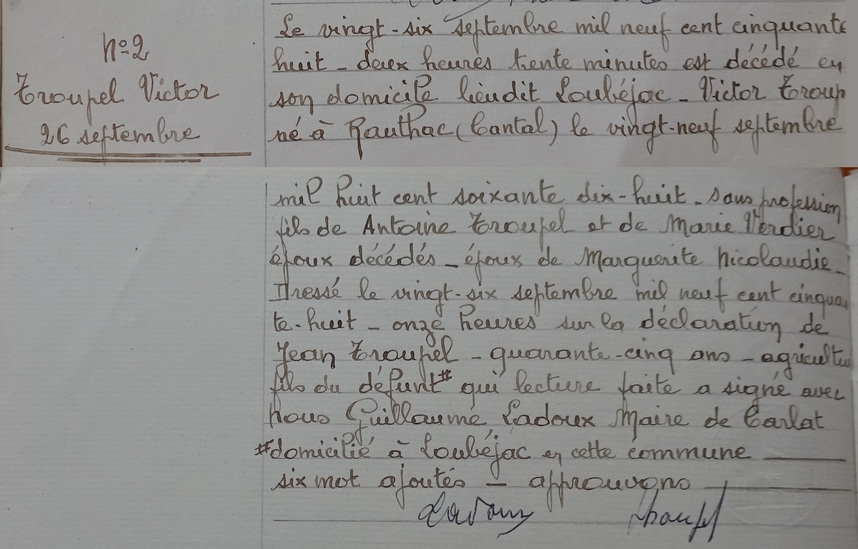 n=2
Troupel Victor
26 septembre
Le vingt-six septembre mil neuf cent cinquante
huit - deux heures trente minutes est décédé en
son domicile lieudit Loubéjac - Victor Troup
né à Rauthac (Cantal) le vingt-neuf septembre
mil huit cent soixante dix-huit - sans profession
fils de Antoine Troupel et de Marie Verdier
époux décédés - époux de Marguerite Nicolaudie -
Dressé le vingt-six septembre mil neuf cent cinqua
te-huit - onze heures sur la déclaration de
Jean Troupel - quarante-cinq ans - agricultu
fils du défunt # qui lecture faite a signé avec
nous Guillaume Ladoux Maire de Carlat
# domicilié à Loubéjac en cette commune
six mot ajoutés - approuvons